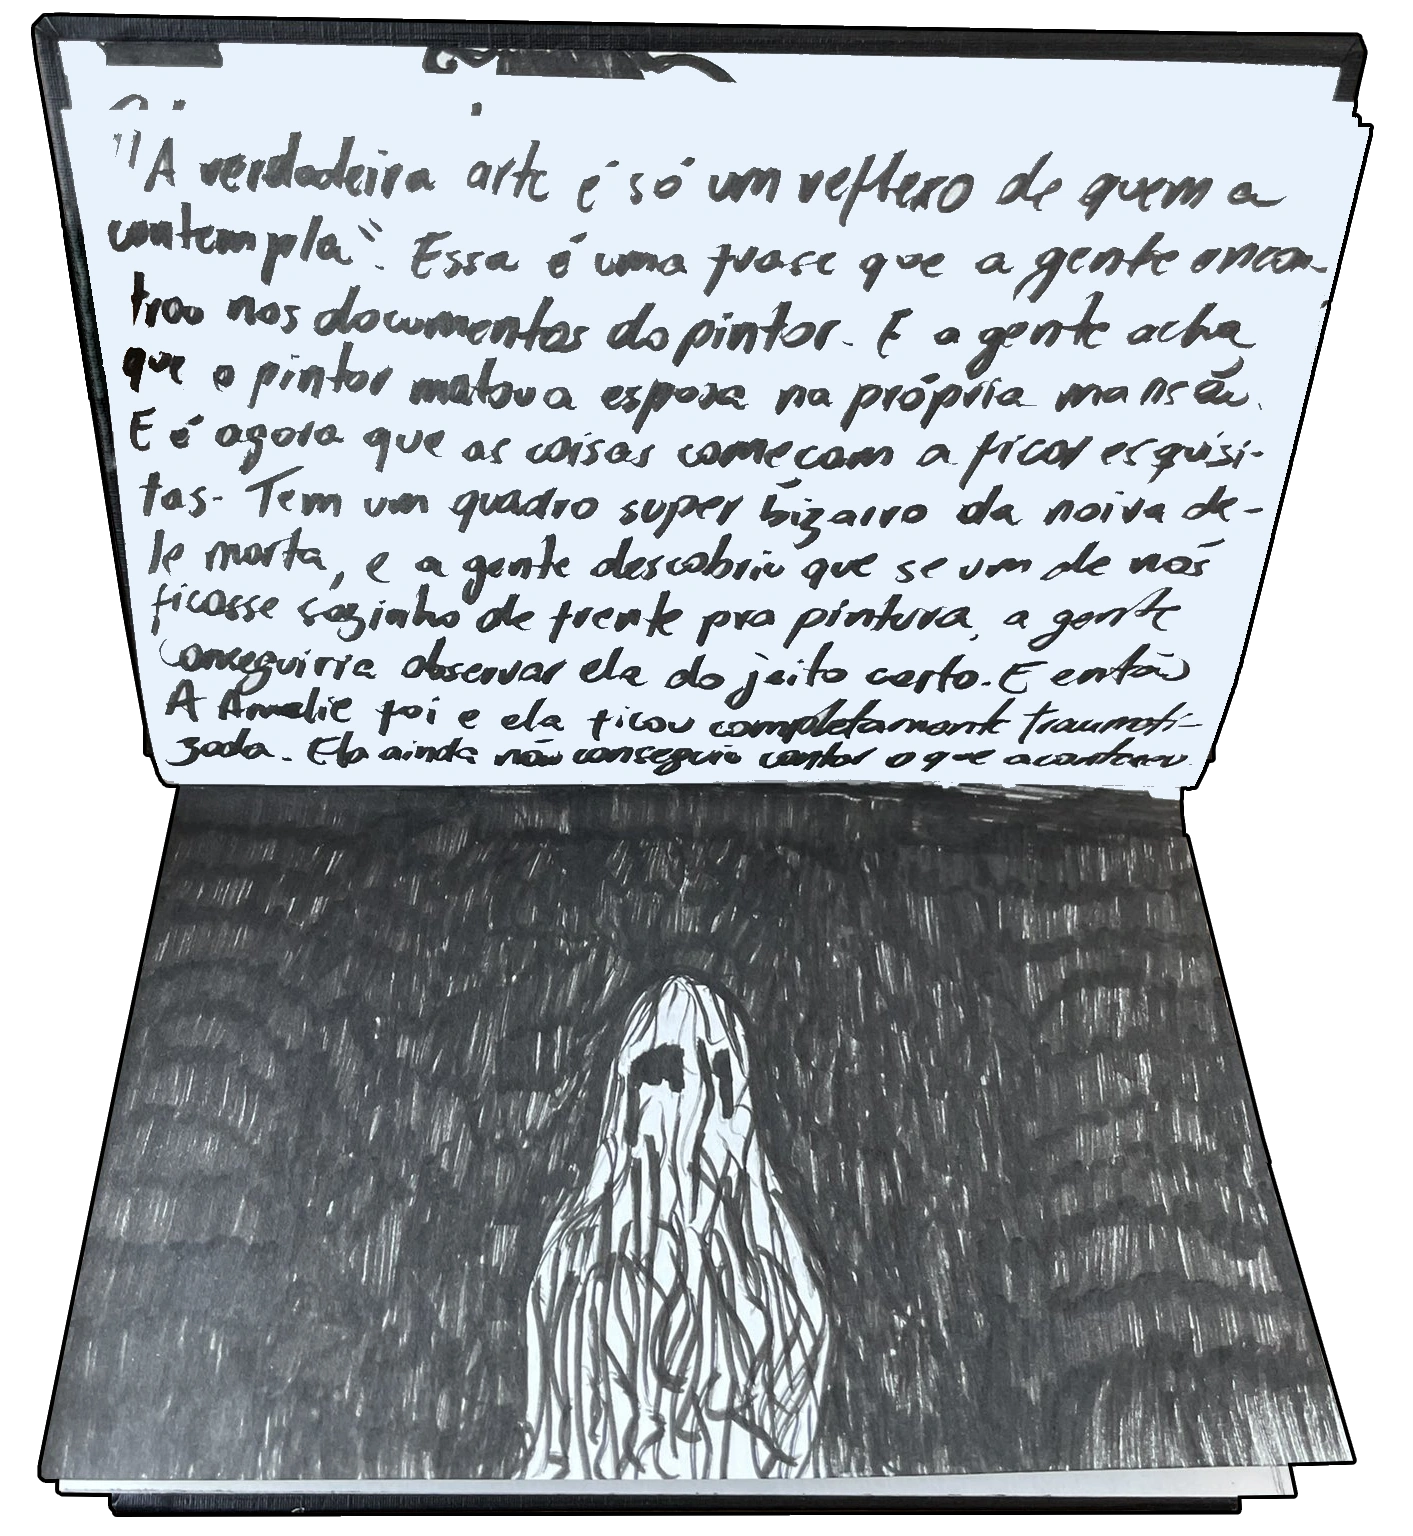 "A verdadeira arte é só um reflexo de quem a
contempla". Essa é uma frase que a gente encon-
trou nos documentos do pintor. E a gente acha
que o pintor matou a esposa na própria mansão.
E é agora que as coisas começam a ficar esquisi-
tas. Tem um quadro super bizarro da noiva de-
le morta, e a gente descobriu que se um de nós
ficasse sozinho de frente pra pintura, a gente
conseguiria observar ela do jeito certo. E então
A Amelie foi e ela ficou completamente traumati-
zada. Ela ainda não conseguiu contar o que aconteceu.